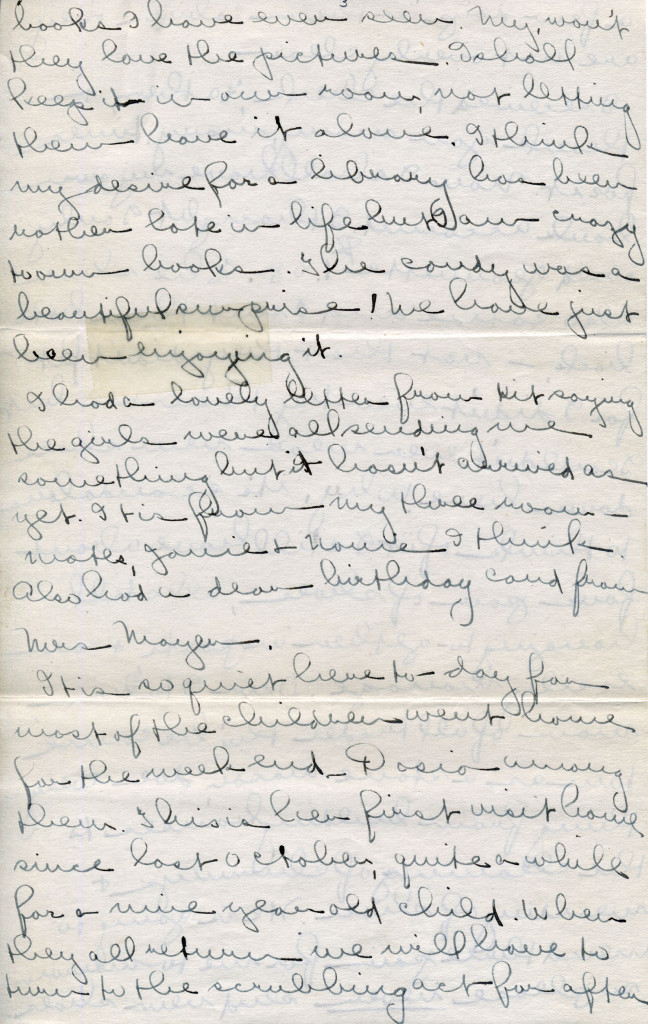 3
books I have ever seen. My, won't
they love the pictures. I shall
keep it in our room, not letting
them have it alone. I think
my desire for a library has been
rather late in life but I am crazy
to own books. The candy was a
beautiful surprise! We have just
been enjoying it.
I had a lovely letter from Kit saying
the girls were all sending me
something but it hasn't arrived as
yet. It is from my three room-
mates, Janie & Nonie I think.
Also had a dear birthday card from
Mrs Mayer.
It is so quiet here to-day for
most of the children went home
for the week end - Dosia among
them. This is her first visit home
since last October, quite a while
for a nine year old child. When
they all return we will have to
turn to the scrubbing act for after